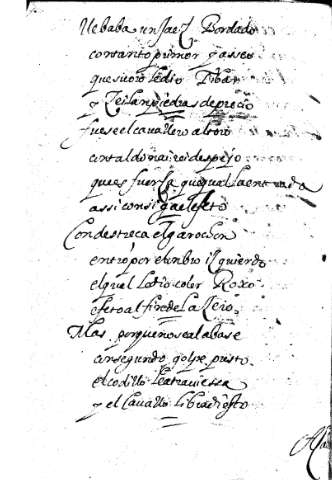 llebaba un Jaez Bordado
con tanto primor y asseo
que su oro le dio Tibar
y Zeilan piedras de precio
fuese el cavallero al toro
con tal donaire despejo
que es fuerza que qual la entrada
assi consigue el efeto
Con destreza el garochon
entro por el nbio izquierdo
el qual Roxo
efeto al fin de la
Mas porque no se alabase
un segundo golpe puesto
el codillo le atraviesa
y el Cavallo libra diesto